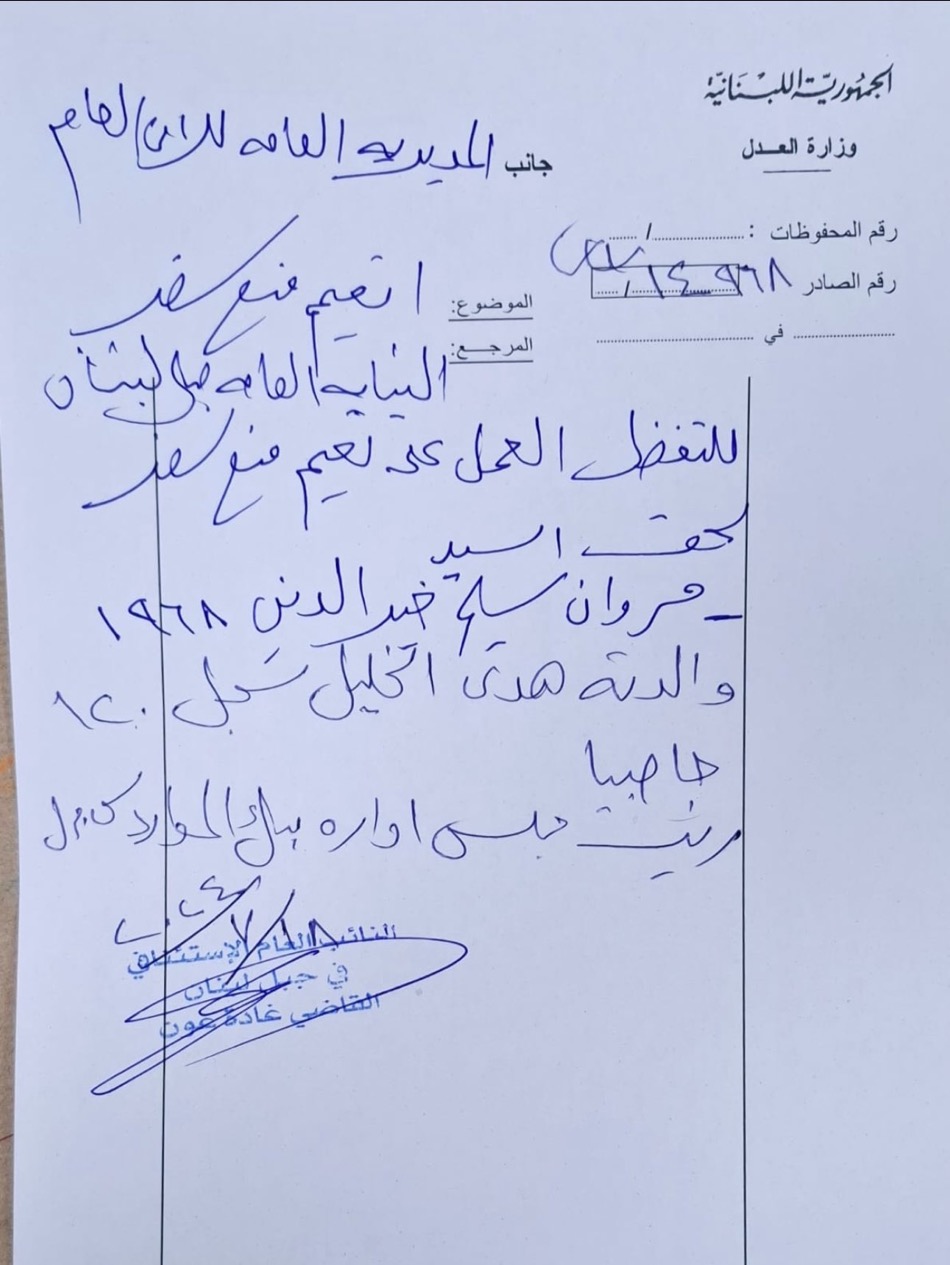 الجمهوريّة اللبنانيّة
وزارة العدل
جانب المديرية العامة للأمن العام
رقم المحفوظات : ......../......
رقم الصادر ١٤٩٦٨/
............ في ............
الموضوع: تعميم منع سفر
المرجع: النيابة العامة جبل لبنان
للتفضل العمل على تعميم منع سفر
بحق السيد
- مروان سليم خير الدين ١٩٦٨
والدته هدى الخليل سجل ١٢٠
حاصبيا
رئيس مجلس ادارة بنك الموارد ش.م.ل
١٨/٧/٢٠٢٤
النائب العام الإستئنافي
في جبل لبنان
القاضي غادة عون